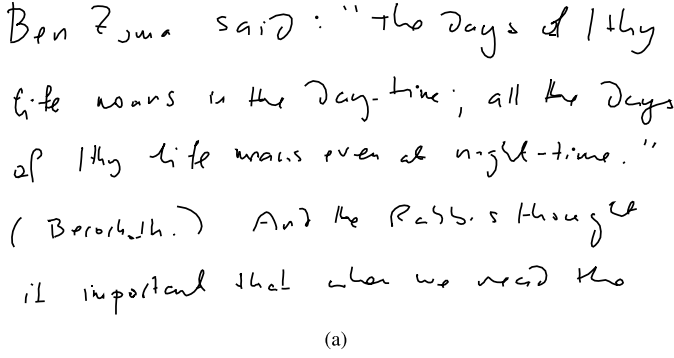 Ben Zoma said: "the days of thy
life means in the day-time; all the days
of thy life means even at night-time."
(Berochoth.) And the Rabbis thought
it important that when we read the
(a)